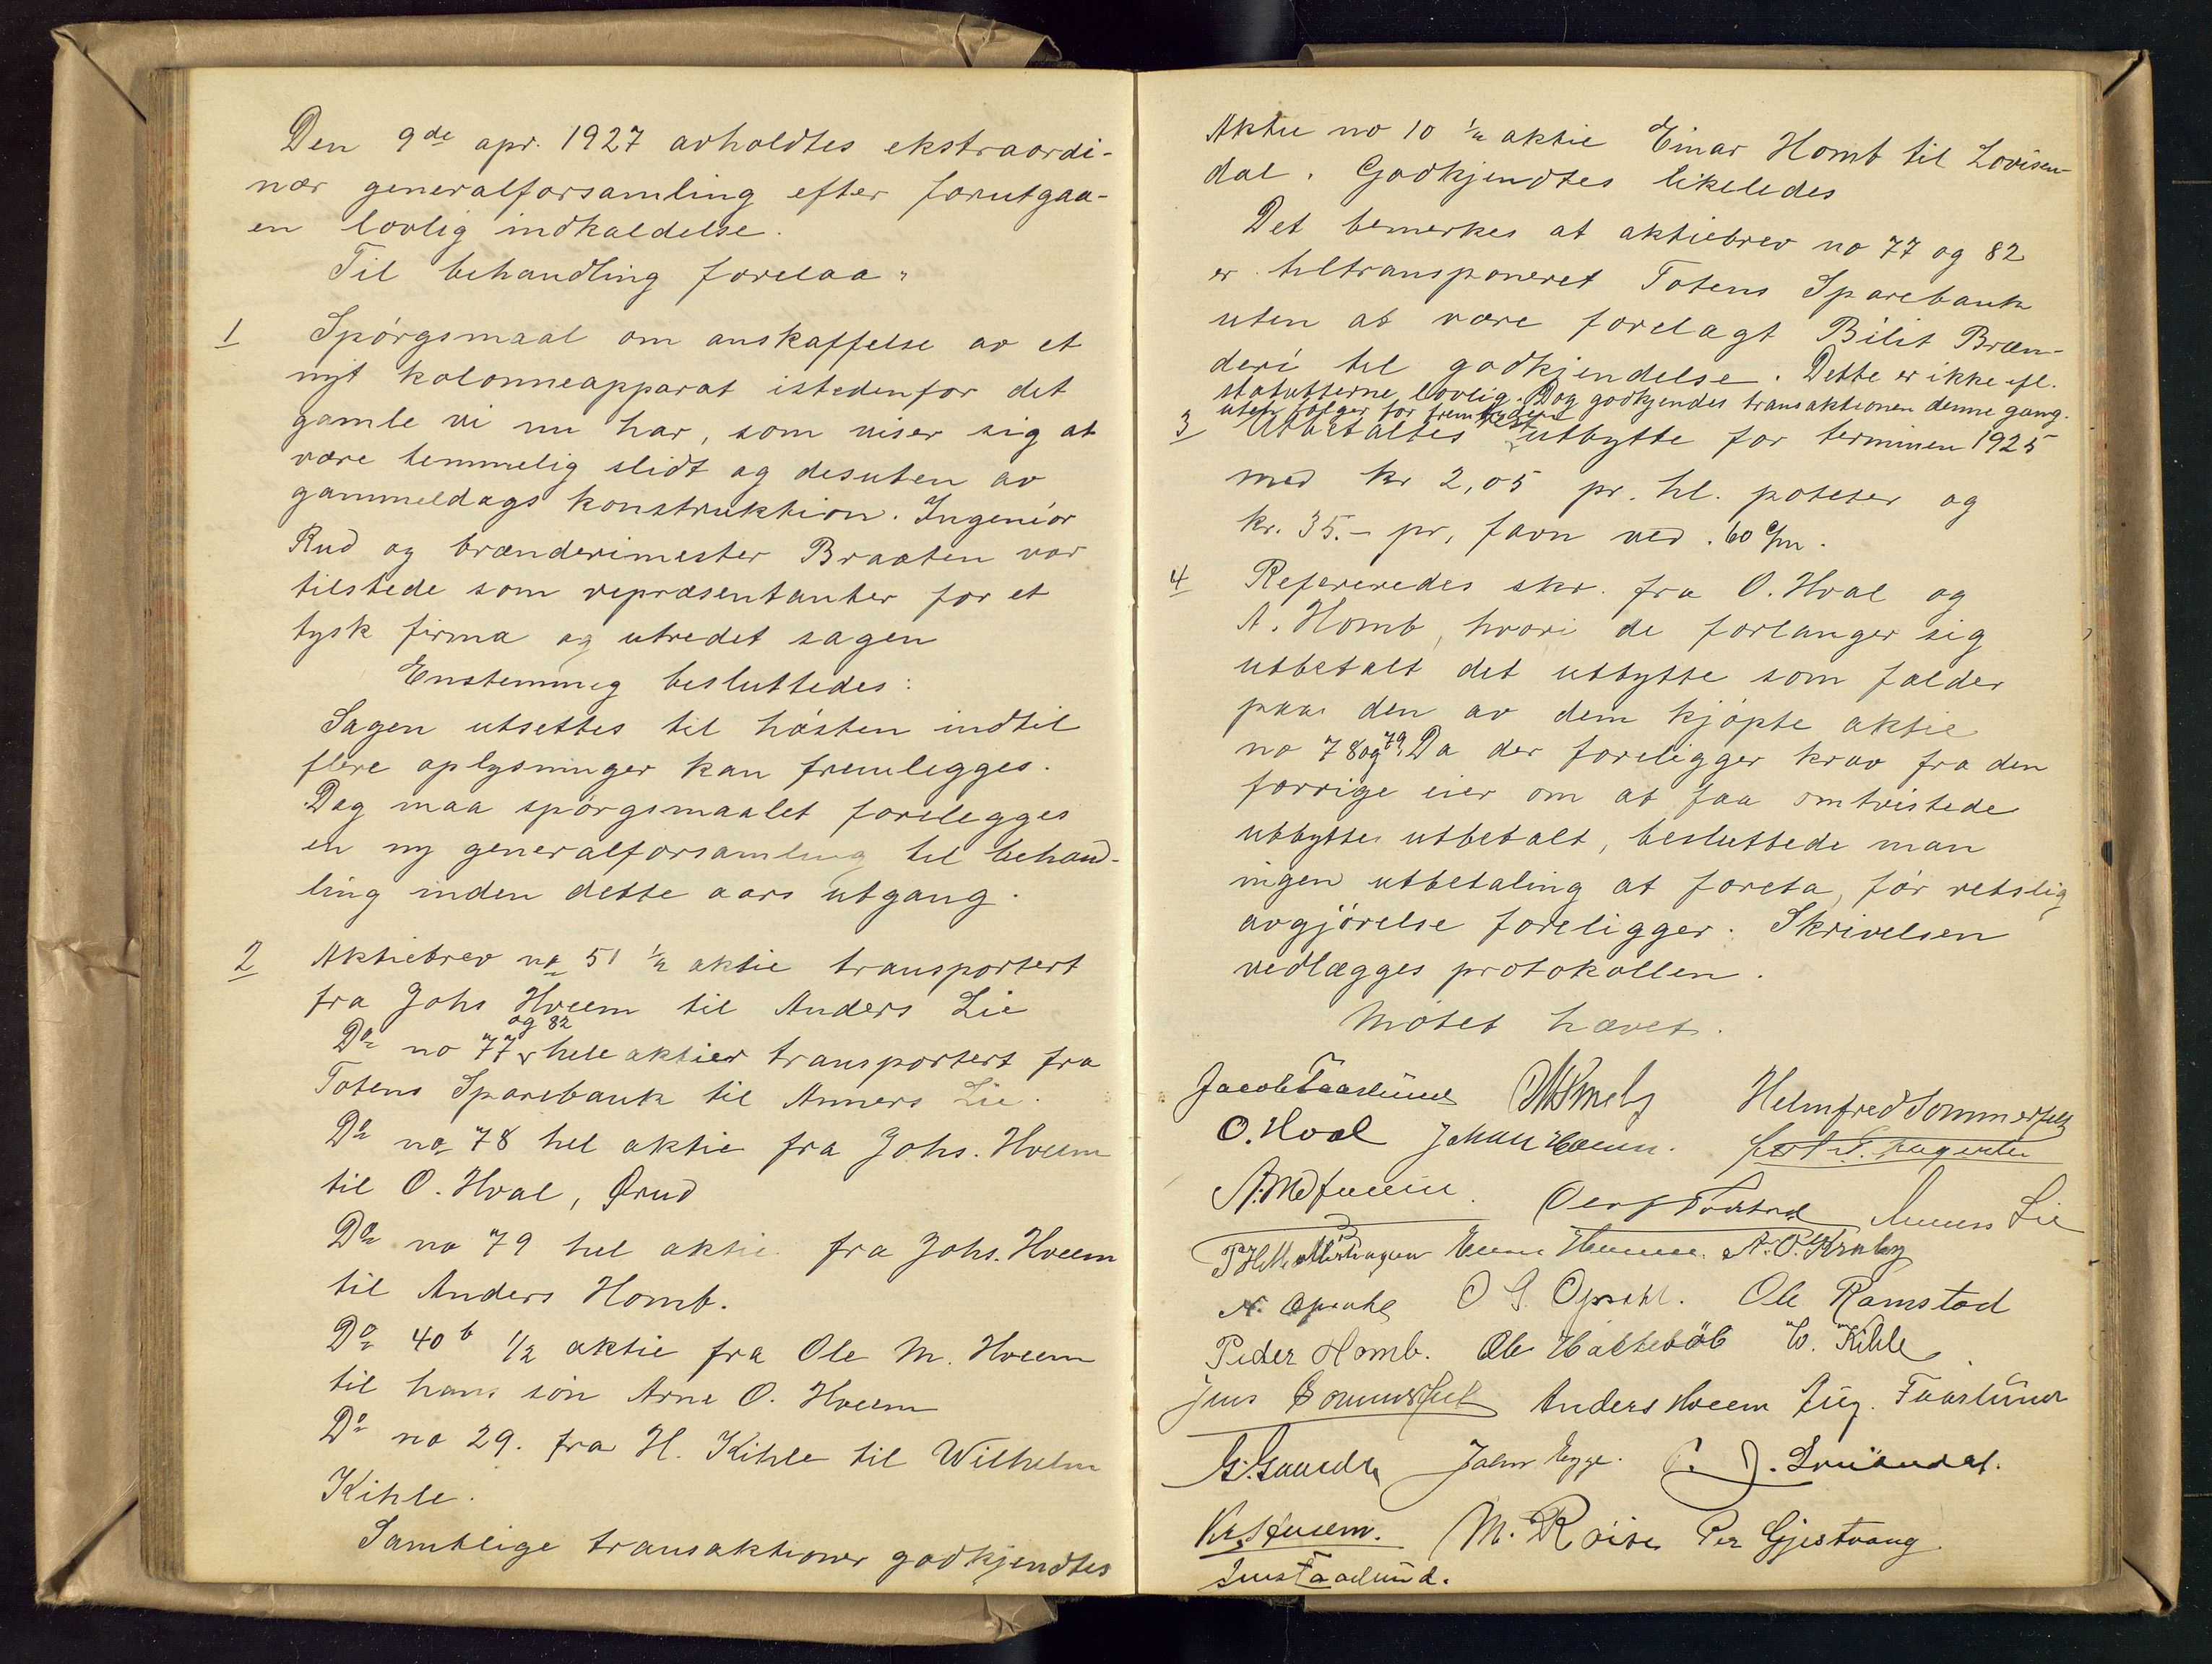 Den 9de apr. 1927 avholdtes ekstraordi-
nær generalforsamling efter forutgaa-
en lovlig indkaldelse.
Til behandling forelaa:
1 Spörgsmaal om anskaffelse av et
nyt kolonneapparat istedenfor det
gamle vi nu har, som viser sig at
være temmelig slidt og desuten av
gammeldags konstruktion. Ingeniör
Rud og brænderimester Braaten var
tilstede som repræsentanter for et
tysk firma og utredet sagen
Enstemmig besluttedes:
Sagen utsettes til hösten indtil
flere oplysninger kan fremlegges.
Dog maa spörgsmaalet forelegges
en ny generalforsamling til behand-
ling inden dette aars utgang.
2 Aktiebrev no 51 1/2 aktie transportert
fra Johs Hveem til Anders Lie
og 82
Do no 77 hele aktier transportert fra
Totens Sparebank til Anners Lie.
Do no 78 hel aktie fra Johs. Hveem
til O. Hval, Ørud
Do no 79 hel aktie fra Johs. Hveem
til Anders Homb.
Do 40 b 1/2 aktie fra Ole M. Hveem
til hans sön Arne O. Hveem
Do no 29. fra H. Kihle til Wilhelm
Kihle.
Samtlige transaktioner godkjendtes
Aktie no 10 1/2 aktie Einar Homb til Lovisen-
dal. Godkjendtes likeledes
Det bemerkes at aktiebrev no 77 og 82
er tiltransponeret Totens Sparebank
uten at være forelagt Bilit Bræn-
deri til godkjendelse. Dette er ikke efl.
statutterne lovlig. Dog godkjendes transaktionen denne gang.
uten følger for fremtiden
3 Utbetaltes rest utbytte for terminen 1925
med kr 2,05 pr. hl. poteter og
kr. 35.- pr. favn ved. 60 c/m.
4 Refereredes skr. fra O. Hval og
A. Homb, hvori de forlanger sig
utbetalt det utbytte som falder
paa den av dem kjöpte aktie
no 78 og 79. Da der foreligger krav fra den
forrige eier om at faa omtvistede
utbytte utbetalt, besluttede man
ingen utbetaling at foreta, för retslig
avgjörelse foreligger. Skrivelsen
vedlægges protokollen.
Mötet hævet.
Jacob Faarlund Helmfred Sommerfelt
O. Hval Johan
Anners Lie
A. O. Kraby
N. Opsahl O G. Opsahl. Ole Ramstad
Peder Homb. Ole W. Kihle
Jens Sommerfelt Anders Hveem Aug. Faarlund
John Egge.
M. Röise Per Gjestvang
Jens Faarlund.